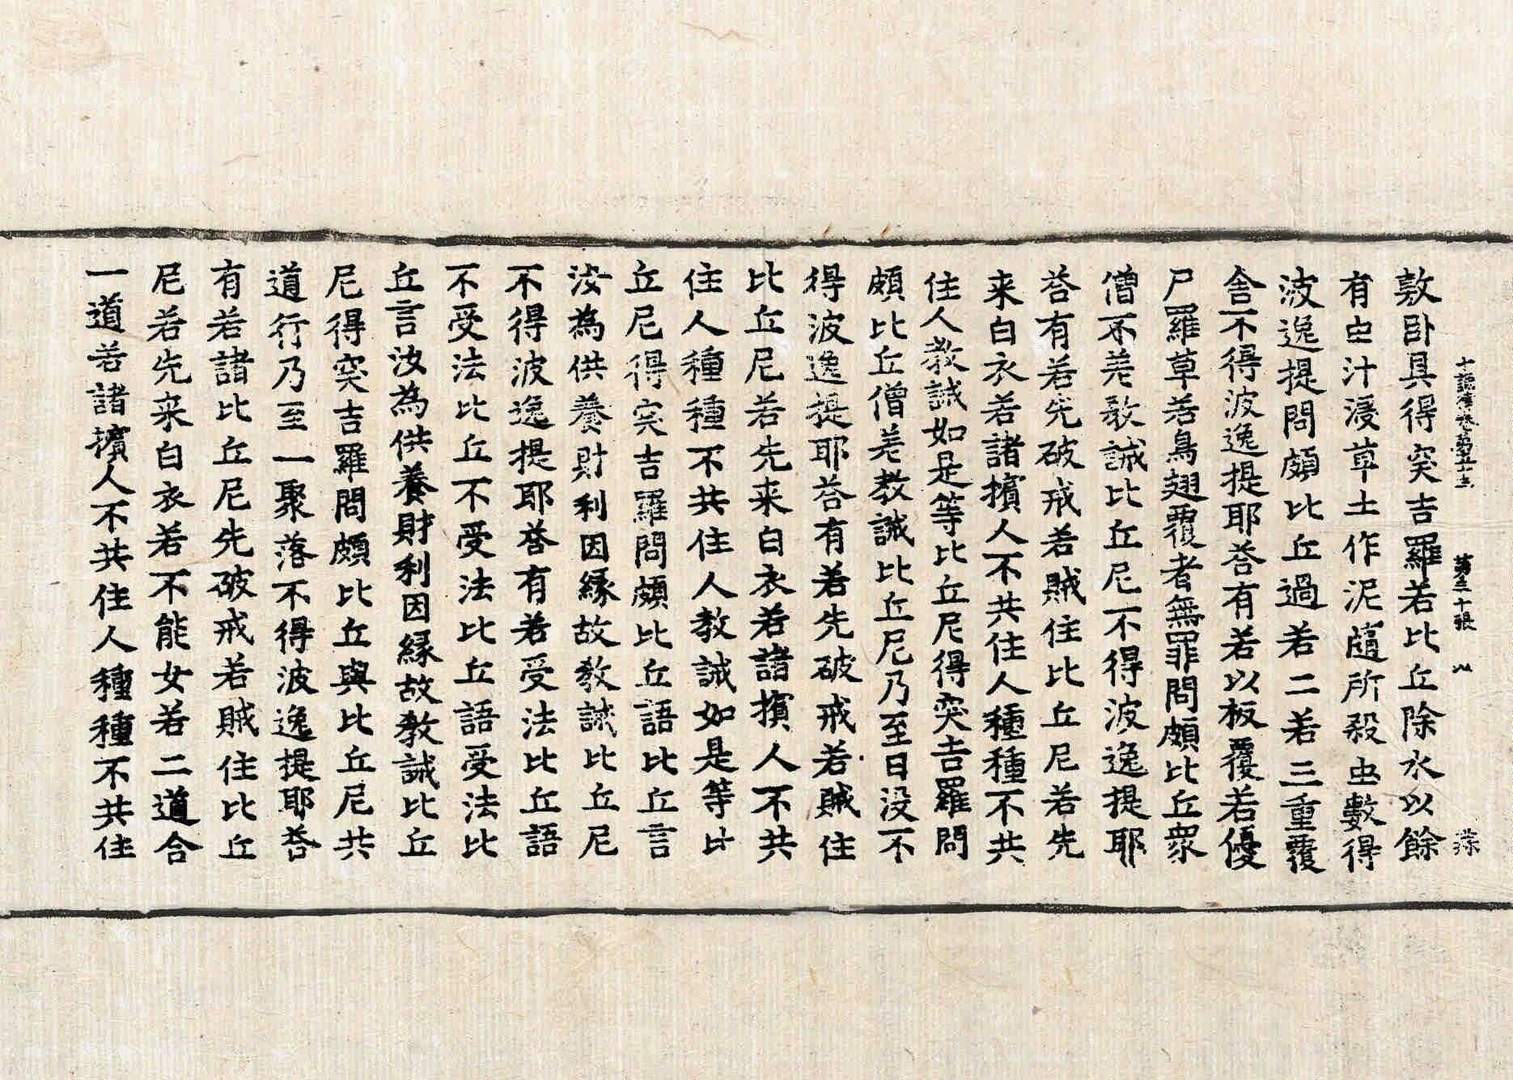 十誦律卷第五十三 第三十張
敷卧具得突吉羅若比丘除水以餘
有虫汁澆草土作泥隨所殺虫數得
波逸提問頗比丘過若二若三重覆
舍不得波逸提耶荅有若以板覆若優
尸羅草若鳥翅覆者無罪問頗比丘衆
僧不羗教誡比丘尼不得波逸提耶
荅有若先破戒若賊住比丘尼若先
来白衣若諸擯人不共住人種種不共
住人教誡如是等比丘尼得突吉羅問
頗比丘僧羗教誡比丘尼乃至日没不
得波逸提耶荅有若先破戒若賊住
比丘尼若先来白衣若諸擯人不共
住人種種不共住人教誡如是等比
丘尼得突吉羅問頗比丘語比丘言
汝為供養財利因縁故教誡比丘尼
不得波逸提耶荅有若受法比丘語
不受法比丘不受法比丘語受法比
丘言汝為供養財利因縁故教誡比丘
尼得突吉羅問頗比丘與比丘尼共
道行乃至一聚落不得波逸提耶荅
有若諸比丘尼先破戒若賊住比丘
尼若先来白衣若不能女若二道合
一道若諸擯人不共住人種種不共住